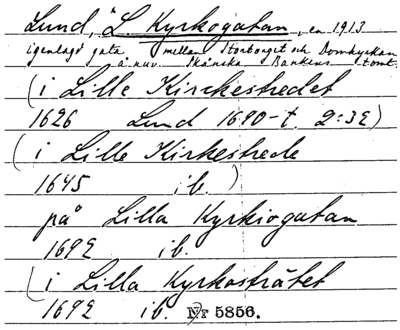 Lund, "L. Kyrkogatan, en 1913
igenlagd gata mellan Stortorget och Domkyrkan
å nuv. Skånska Bankens tomt.
(i Lille Kirckestredet
1626 Lund 1690-t. 2:32)
(i Lille Kirkestrede
1645 ib.)
på Lilla Kyrkiogatan
1692 ib.
(i Lilla Kyrkostrátet
1692 ib. Nr 5856.